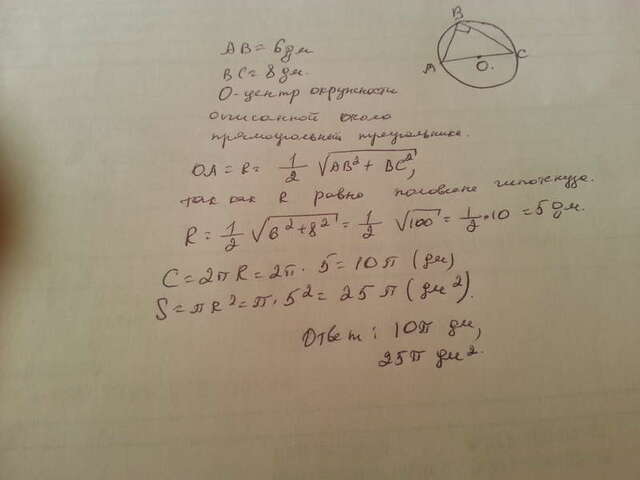 B
A
C
O.
AB = 6 дм
BC = 8 дм.
O - центр окружности
описанной около
прямоугольный треугольника.
OA = R = 1/2 √(AB² + BC²),
так как R равно половине гипотенузе.
R = 1/2 √(6² + 8²) = 1/2 √100 = 1/2 · 10 = 5 дм.
C = 2πR = 2π · 5 = 10π (дм)
S = πR² = π · 5² = 25π (дм²).
Ответ: 10π дм,
25π дм².